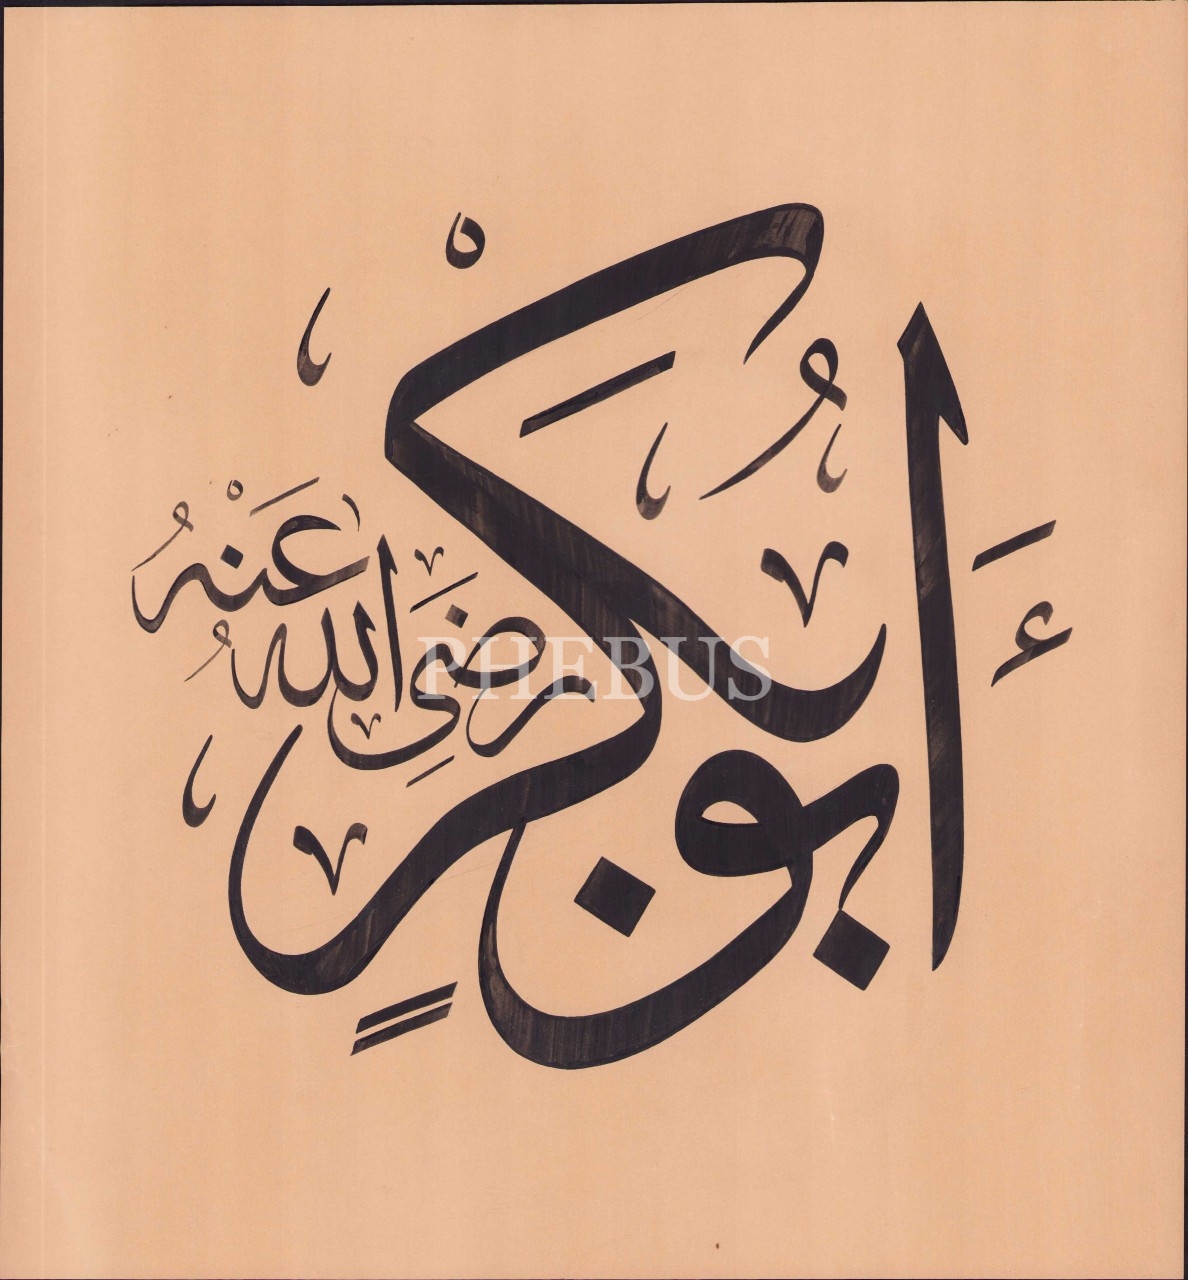 أَبُو بَكْرٍ
رَضِيَ اللهُ عَنْهُ
PHEBUS